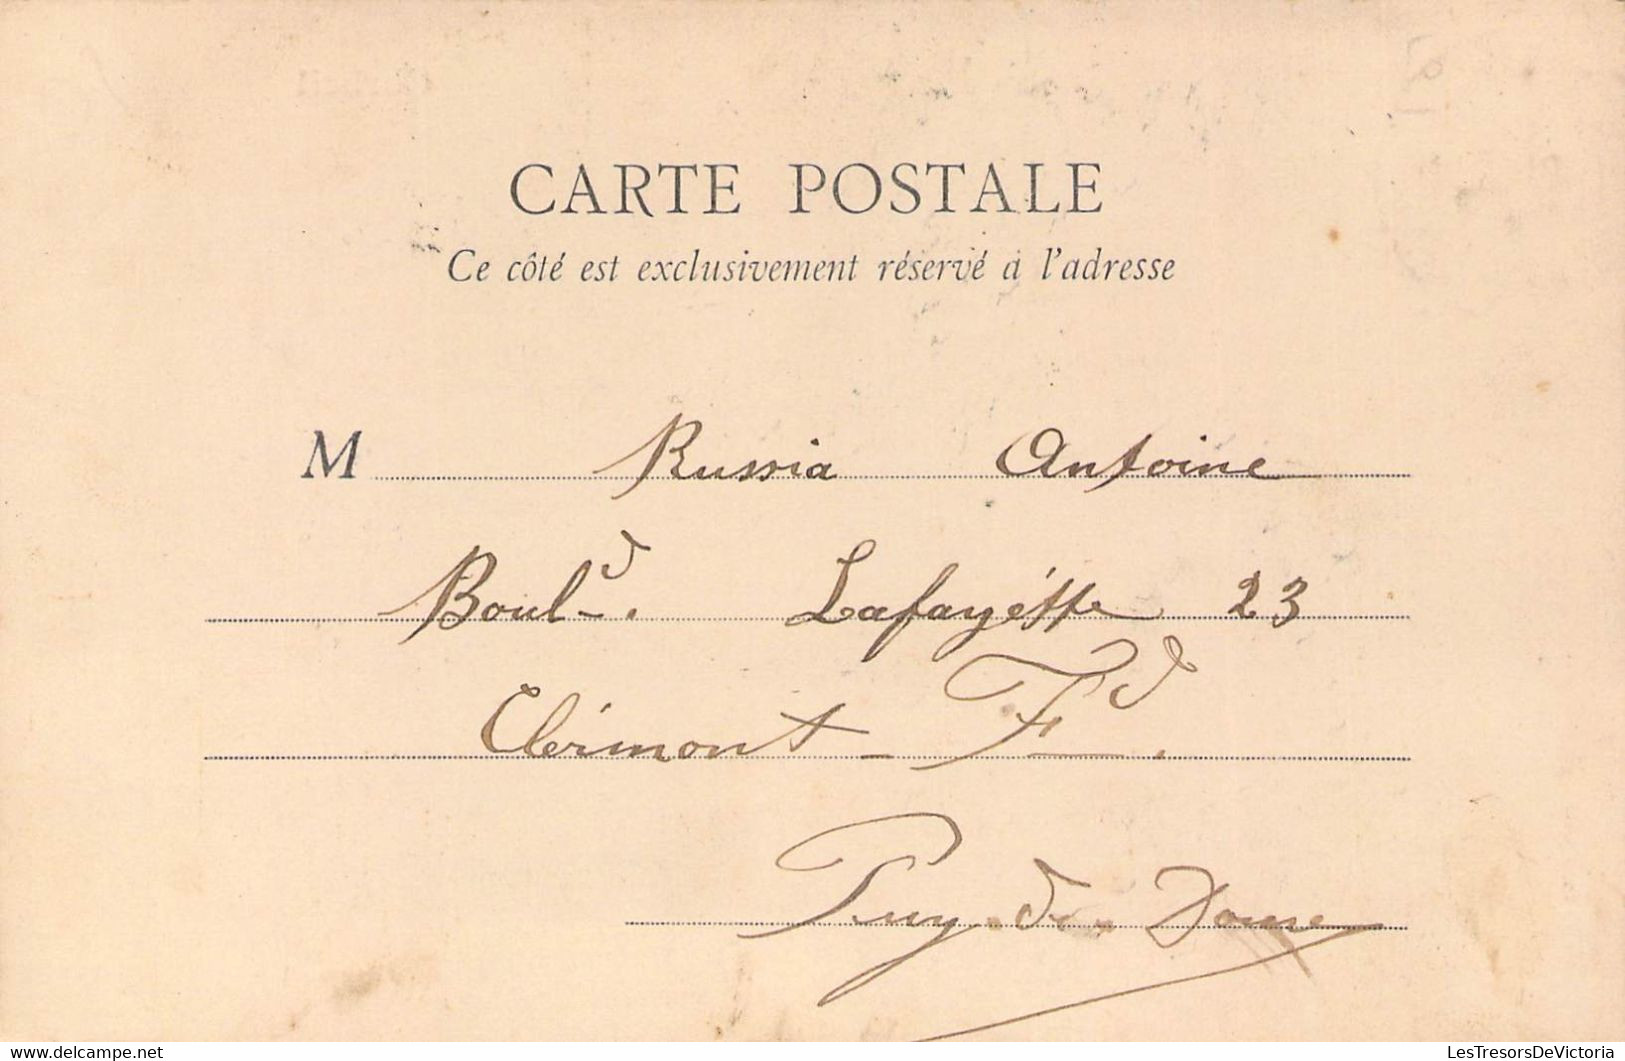 CARTE POSTALE
Ce côté est exclusivement réservé à l'adresse
M Russia Antoine
Boul.d Lafayétte 23
Clérmont - F.d
Puy-de-Dome
LesTresorsDeVictoria